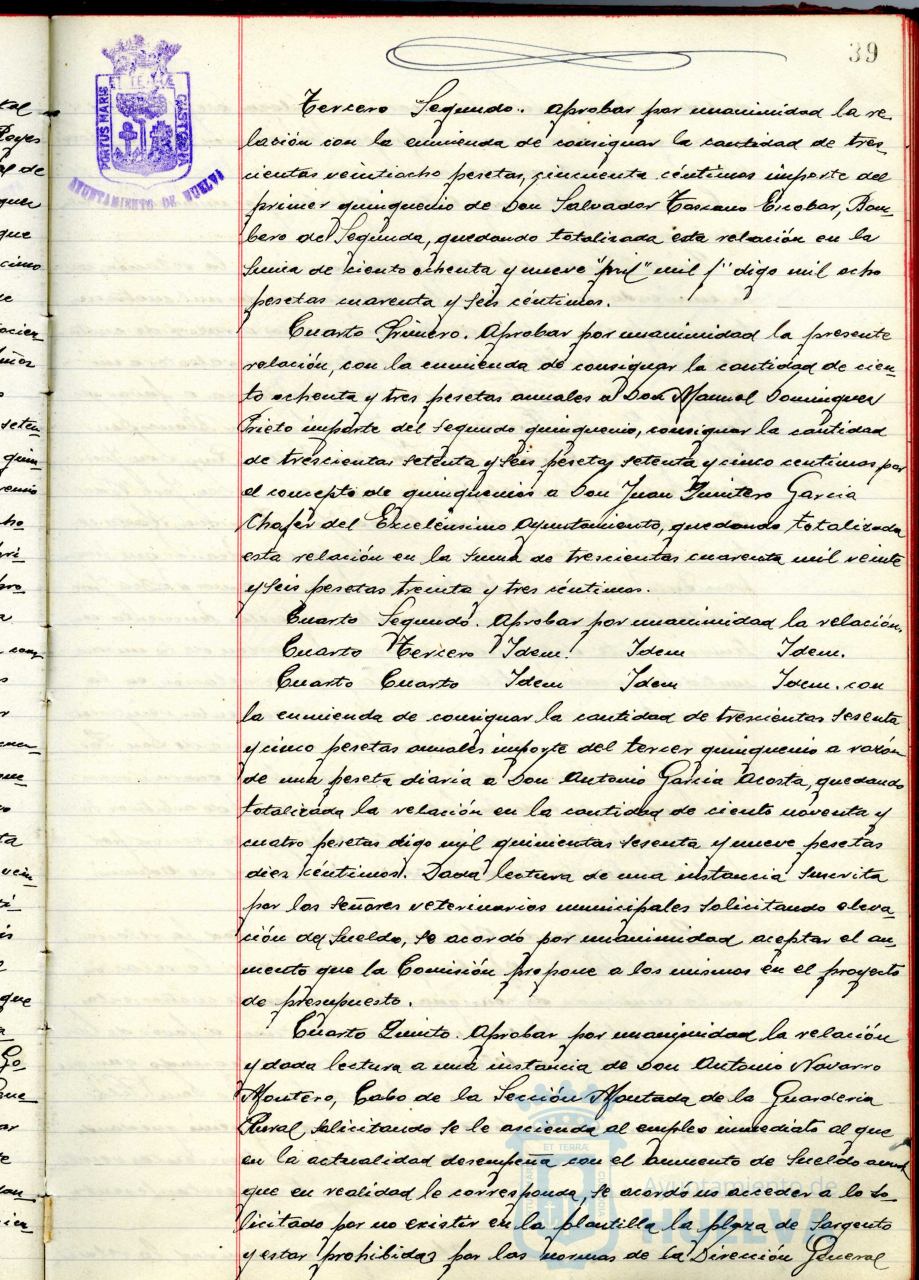 39
PORTUS MARIS ET TERRÆ CUSTODIA
AYUNTAMIENTO DE HUELVA
Tercero Segundo. Aprobar por unanimidad la re-
lación con la enmienda de consignar la cantidad de tres
cientas veintiocho pesetas, cincuenta céntimos importe del
primer quinquenio de Don Salvador Toscano Escobar, Bom-
bero de Segunda, quedando totalizada esta relación en la
suma de ciento ochenta y nueve "pril" mil digo mil ocho
pesetas cuarenta y seis céntimos.
Cuarto Primero. Aprobar por unanimidad la presente
relación, con la enmienda de consignar la cantidad de cien-
to ochenta y tres pesetas anuales a Don Manuel Dominguez
Prieto importe del segundo quinquenio, consignar la cantidad
de trescientas setenta y seis pesetas setenta y cinco centimos por
el concepto de quinquenios a Don Juan Quintero Garcia
Chofer del Excelensimo Ayuntamiento, quedando totalizada
esta relación en la suma de trescientas cuarenta mil veinte
y seis pesetas treinta y tres céntimos.
Cuarto Segundo. Aprobar por unanimidad la relación.
Cuarto Tercero Idem. Idem Idem.
Cuarto Cuarto Idem Idem Idem. con
la enmienda de consignar la cantidad de trescientas sesenta
y cinco pesetas anuales importe del tercer quinquenio a razón
de una peseta diaria a Don Antonio Garcia Acosta, quedando
totalizada la relación en la cantidad de ciento noventa y
cuatro pesetas digo mil quinientas sesenta y nueve pesetas
diez céntimos. Dada lectura de una instancia suscrita
por los señores veterinarios municipales solicitando eleva-
ción de sueldo, se acordó por unanimidad aceptar el au-
mento que la Comisión propone a los mismos en el proyecto
de presupuesto.
Cuarto Quinto. Aprobar por unanimidad la relación
y dada lectura a una instancia de Don Antonio Navarro
Montero, Cabo de la Sección Montada de la Guarderia
Rural solicitando se le ascienda al empleo inmediato al que
en la actualidad desempeña con el aumento de sueldo
que en realidad le corresponda, se acordó no acceder a lo so-
licitado por no existir en la plantilla la plaza de Sargento
y estar prohibida por las normas de la Dirección General
ET TERRA
Ayuntamiento de
HUELVA